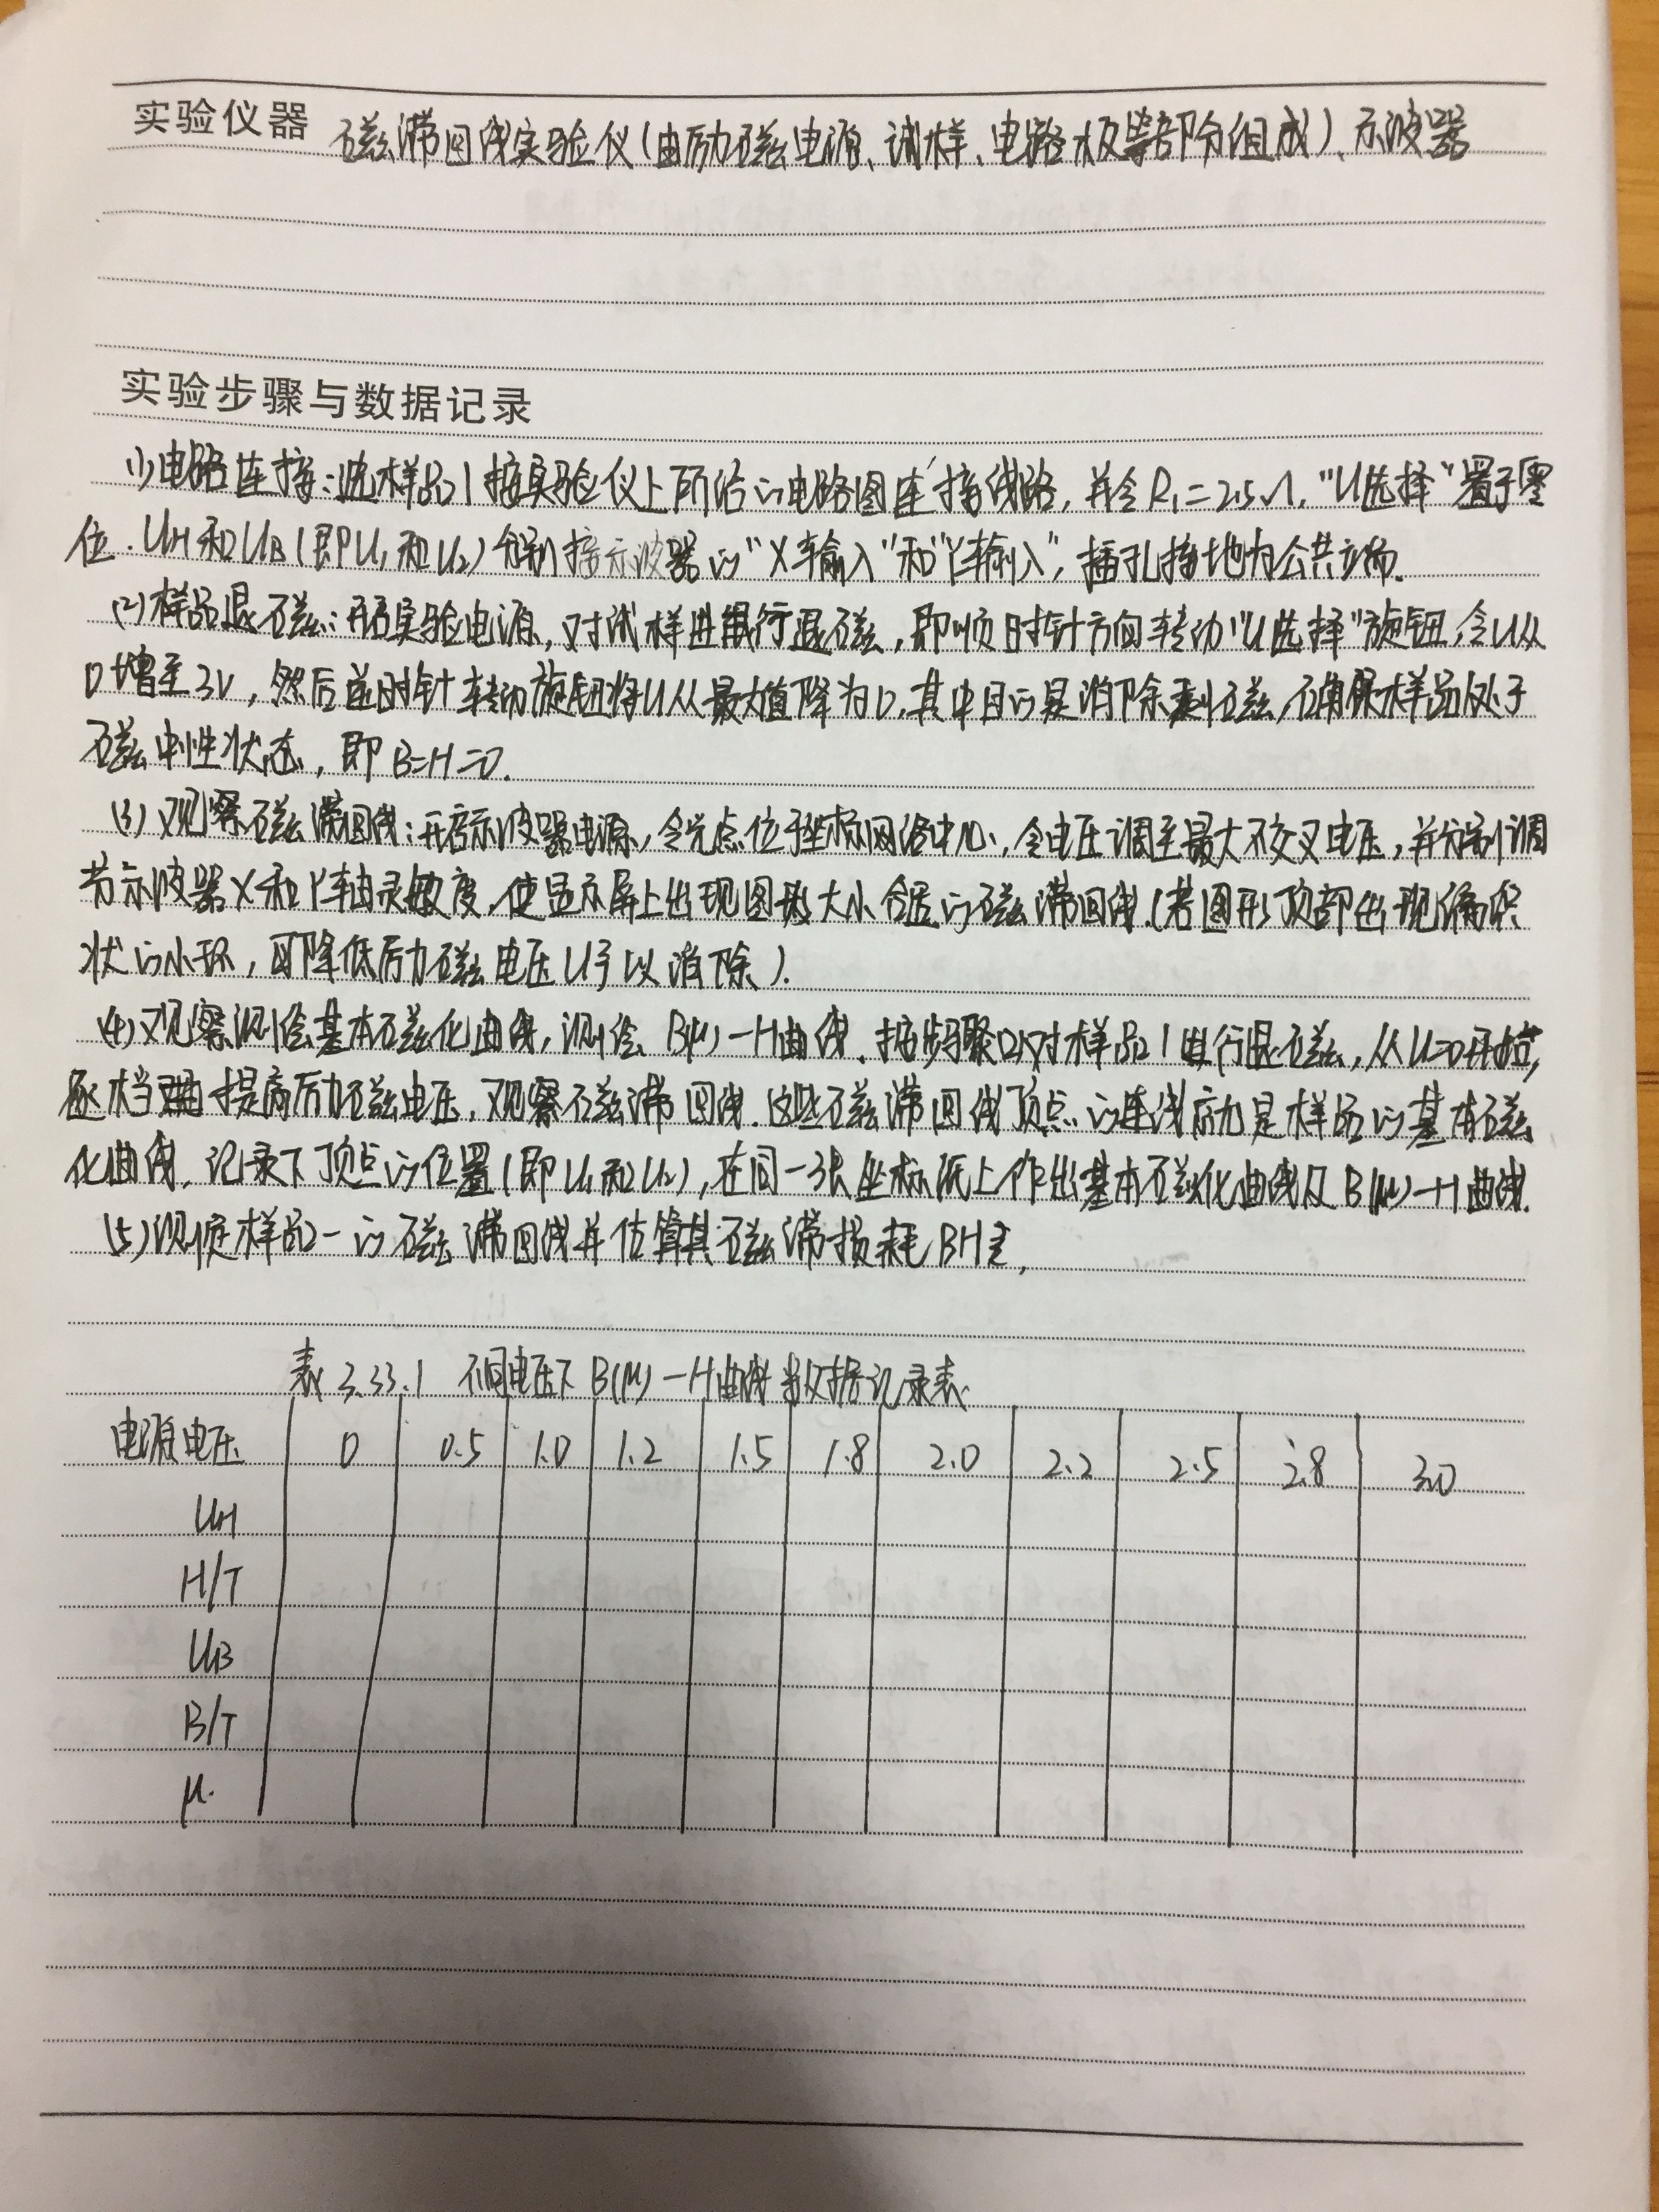 实验仪器 磁滞回线实验仪(由励磁电源、试样、电路板等部分组成)、示波器
实验步骤与数据记录
(1)电路连接:选样品1按实验仪上所给的电路图连接线路,并令R₁=2.5Ω,“U选择”置于零
位.UH和UB(即U₁和U₂)分别接示波器的“X轴输入”和“Y轴输入”,插孔接地为公共端.
(2)样品退磁:开启实验电源,对试样进行退磁,即顺时针方向转动“U选择”旋钮,令U从
0增至3V,然后逆时针转动旋钮将U从最大值降为0,其中目的是消除剩磁,确保样品处于
磁中性状态,即B=H=0.
(3)观察磁滞回线:开启示波器电源,令光点位于坐标网络中心,令电压调至最大不交叉电压,并分别调
节示波器X和Y轴灵敏度,使显示屏上出现图形大小合适的磁滞回线.(若图形顶部出现编织
状的小环,可降低励磁电压U予以消除).
(4)观察测绘基本磁化曲线,测绘B(μ)-H曲线.按步骤(2)对样品1进行退磁,从U=0开始,
逐档提高励磁电压,观察磁滞回线.这些磁滞回线顶点的连线就是样品的基本磁
化曲线,记录下顶点的位置(即U₁和U₂),在同一张坐标纸上作出基本磁化曲线及B(μ)-H曲线.
(5)测定样品一的磁滞回线并估算其磁滞损耗BH
表3.33.1 不同电压下B(μ)-H曲线数据记录表
电源电压 0 0.5 1.0 1.2 1.5 1.8 2.0 2.2 2.5 2.8 3.0
UH
H/T
UB
B/T
μ.